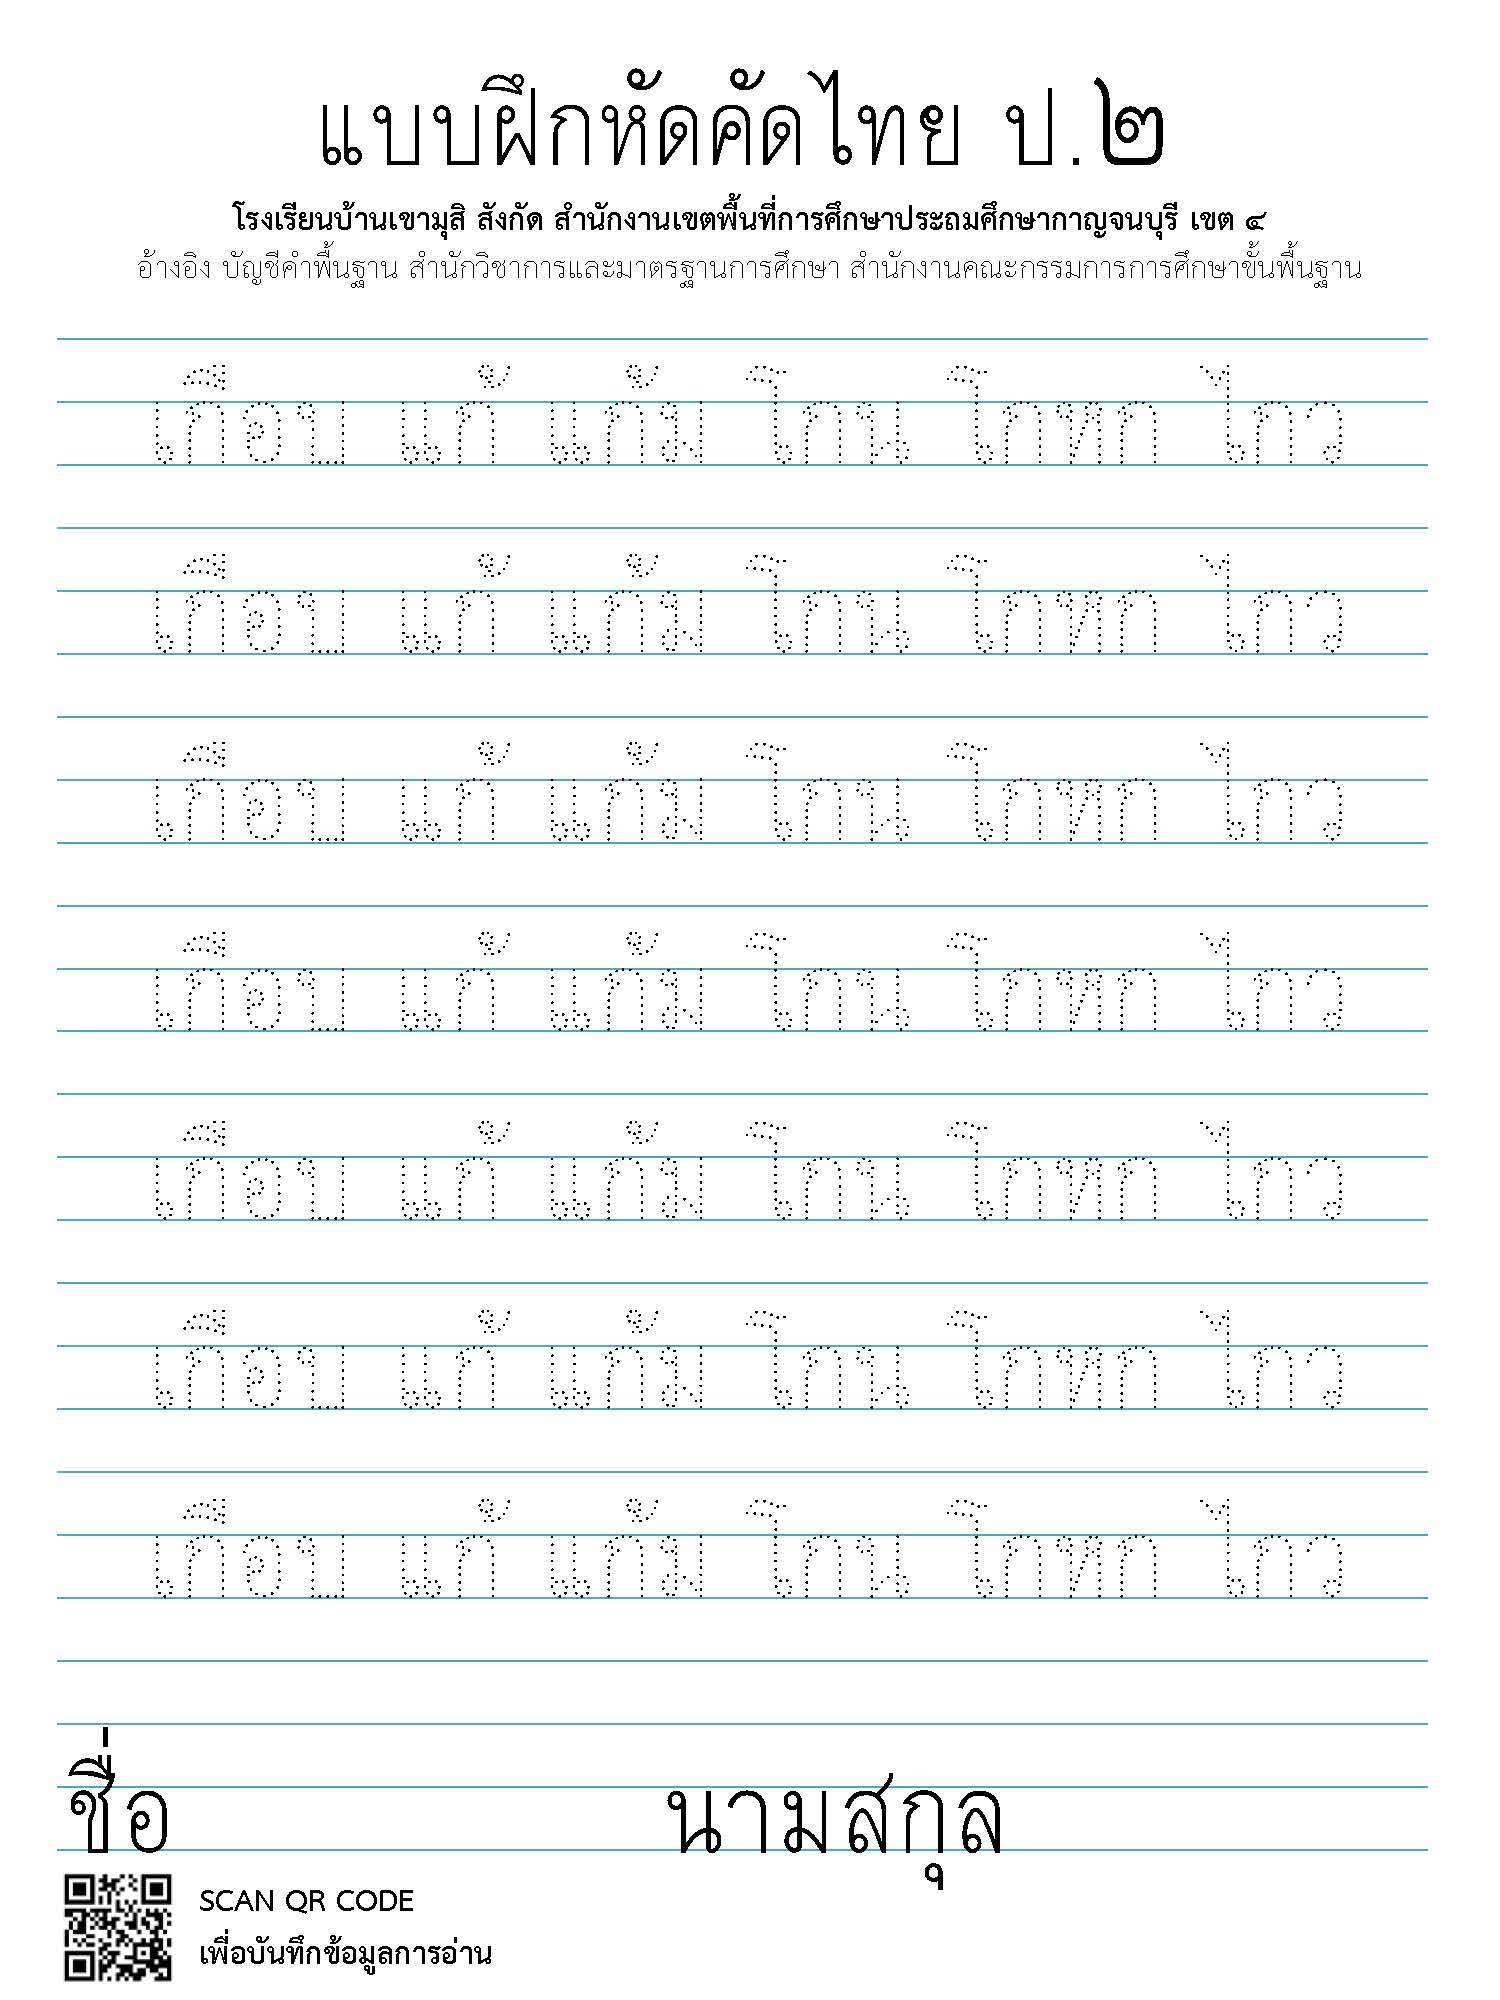 แบบฝึกหัดคัดไทย ป.๒
โรงเรียนบ้านเขามุสิ สังกัด สำนักงานเขตพื้นที่การศึกษาประถมศึกษากาญจนบุรี เขต ๔
อ้างอิง บัญชีคำพื้นฐาน สำนักวิชาการและมาตรฐานการศึกษา สำนักงานคณะกรรมการการศึกษาขั้นพื้นฐาน
เกือบ แก้ แก้ม โกน โกหก ไกว
เกือบ แก้ แก้ม โกน โกหก ไกว
เกือบ แก้ แก้ม โกน โกหก ไกว
เกือบ แก้ แก้ม โกน โกหก ไกว
เกือบ แก้ แก้ม โกน โกหก ไกว
เกือบ แก้ แก้ม โกน โกหก ไกว
เกือบ แก้ แก้ม โกน โกหก ไกว
ชื่อ นามสกุล
SCAN QR CODE
เพื่อบันทึกข้อมูลการอ่าน